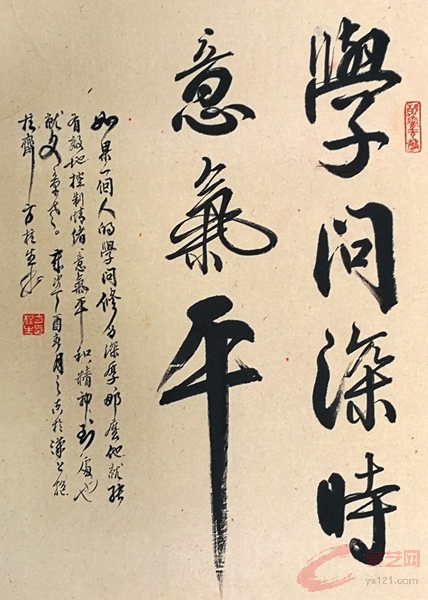 學問深時
意氣平
如果一個人的學問修為深厚那麼他就能
有效地控制情緒意氣平和精神到處也
歲次丁酉年月
方柱生
ys121.com